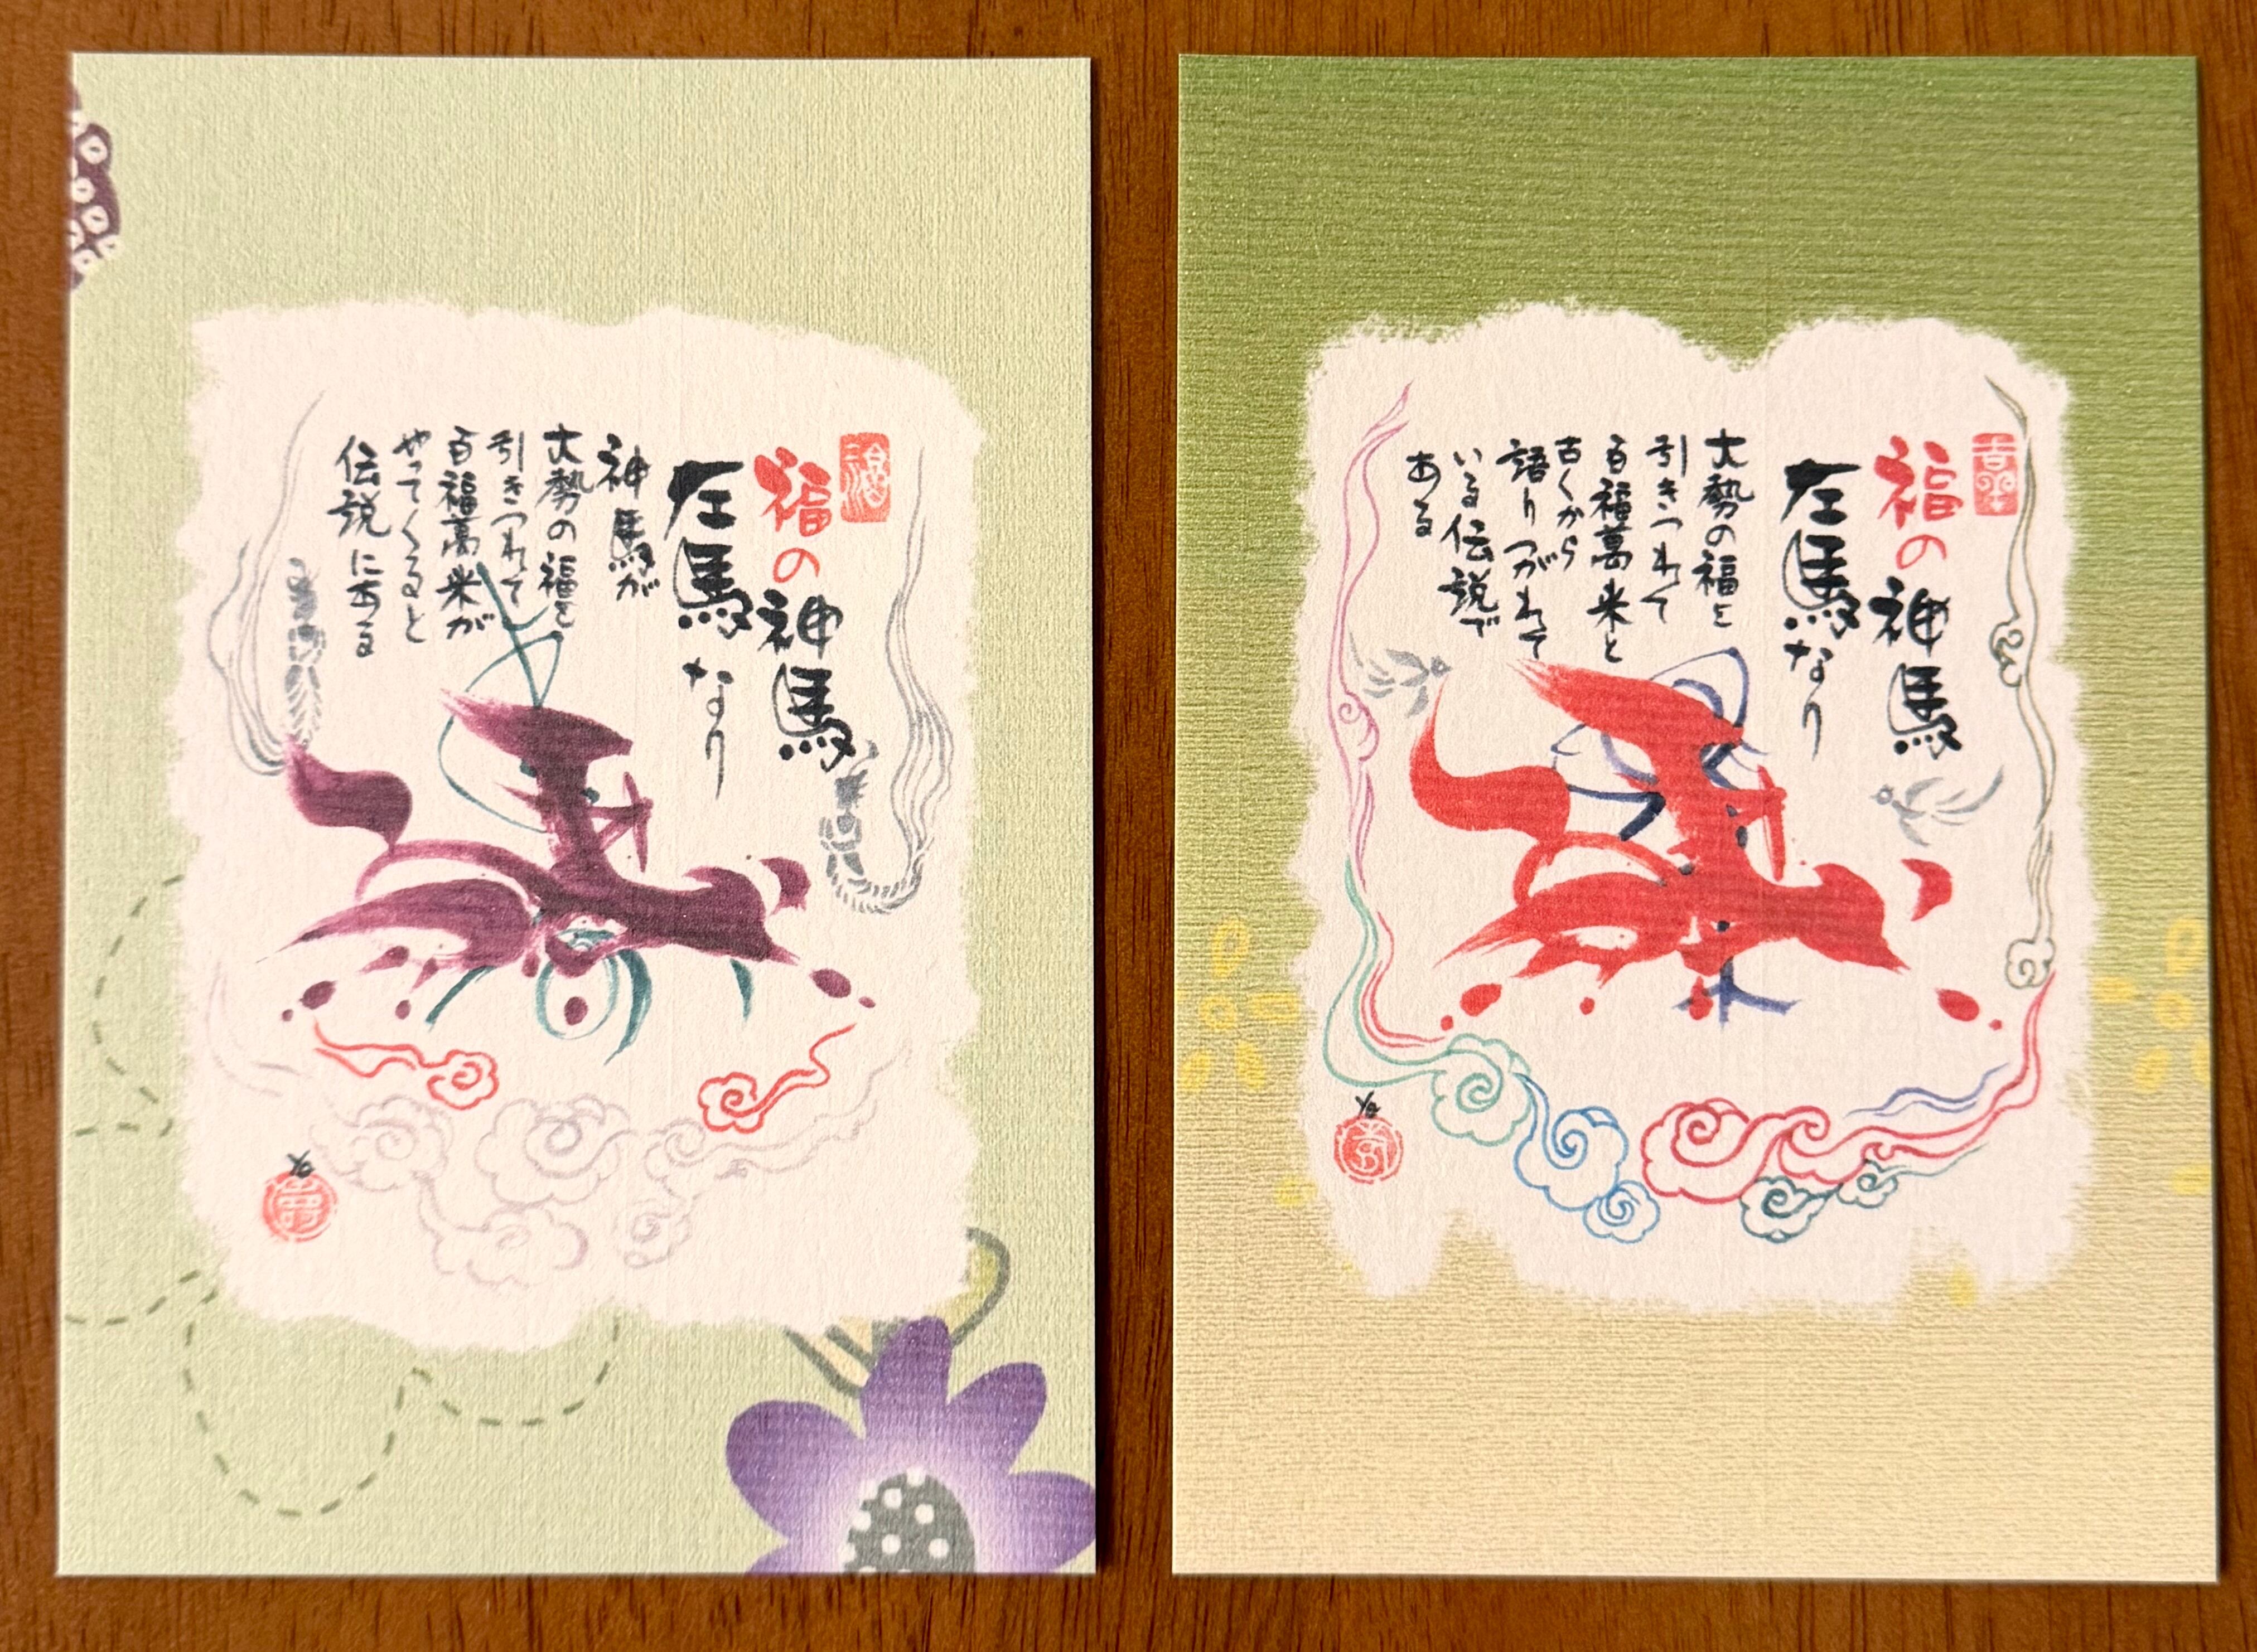 福の神馬
左馬なり
神馬が
大勢の福を
引きつれて
百福萬来が
やってくると
伝説にある
福の神馬
左馬なり
大勢の福を
引きつれて
百福萬来と
古くから
語りつがれて
いる伝説で
ある